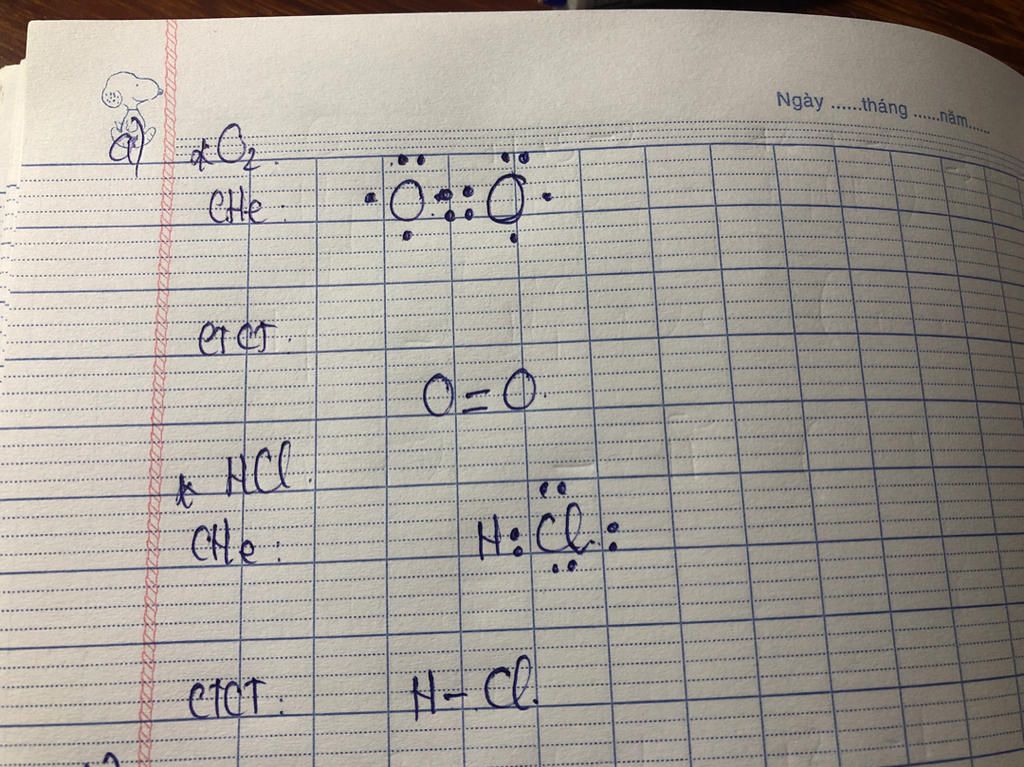 Ngày ......tháng ......năm......
a) * O₂.
CHe: ·O::O·
CTCT:
O=O.
* HCl.
CHe: H:Cl:
CTCT: H-Cl.